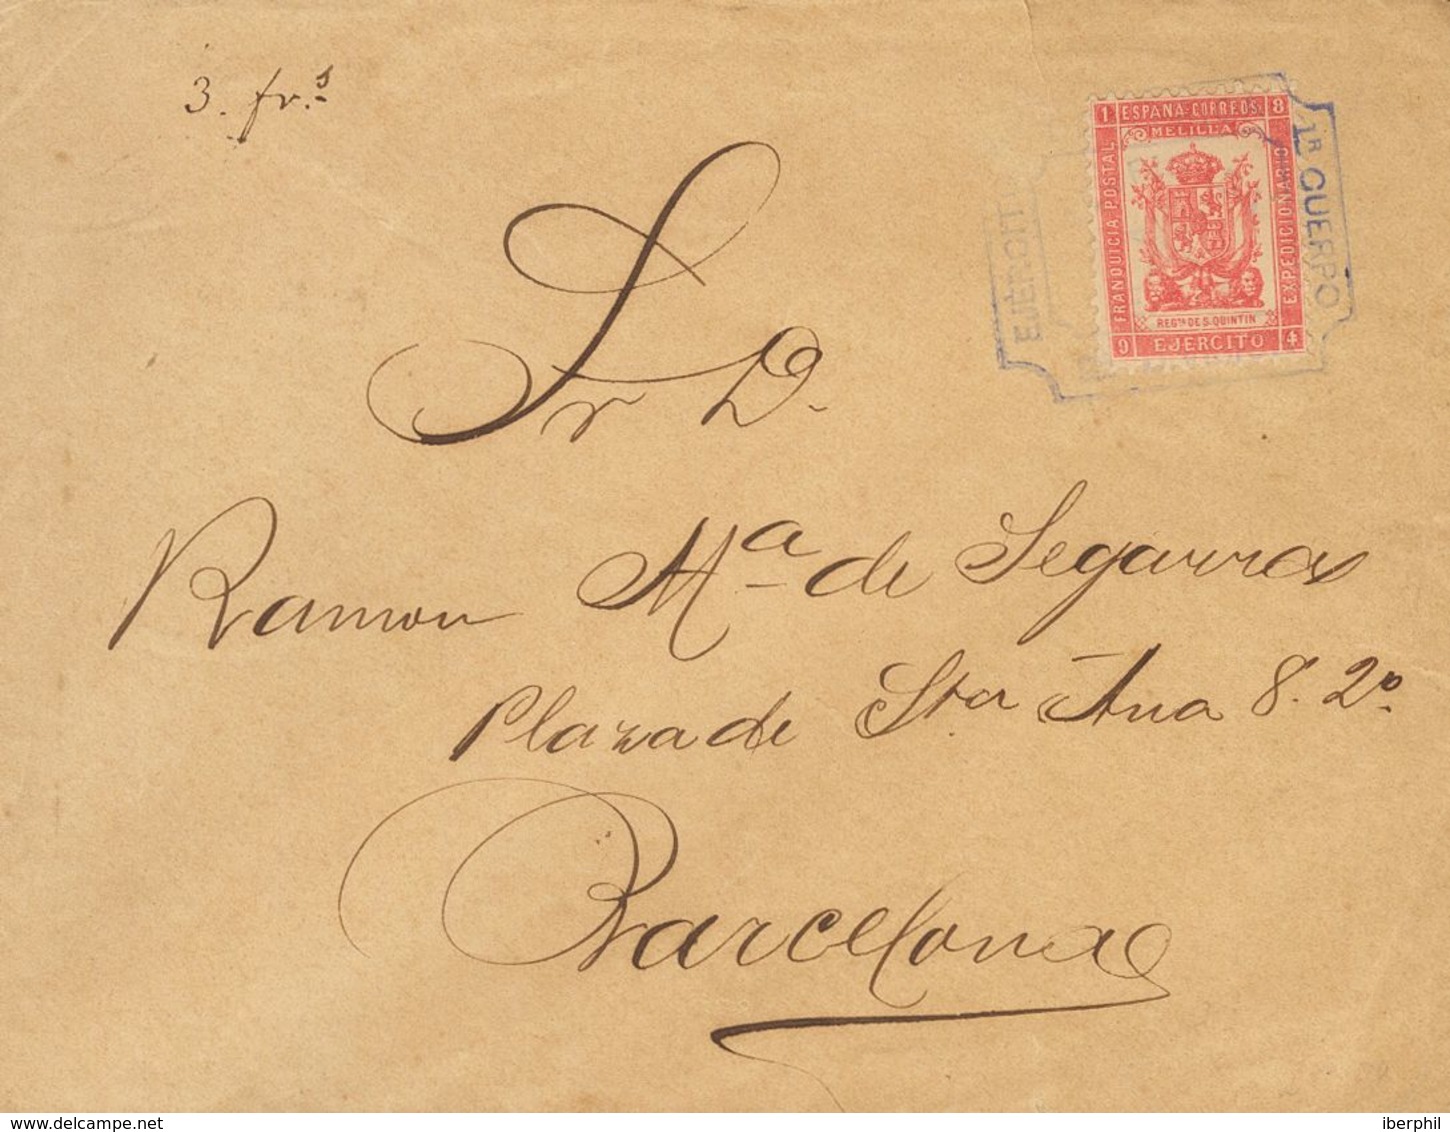 3. frs
Sr D.
Ramon Mª de Segarra
Plaza de Sta Ana 8. 2º
Barcelona
1 ESPAÑA-CORREOS. 8
MELILLA
FRANQUICIA POSTAL
EXPEDICIONARIO
REGTO DE S. QUINTIN
9 EJERCITO 4
EJÉRCITO
1R CUERPO
delcampe.net
iberphil